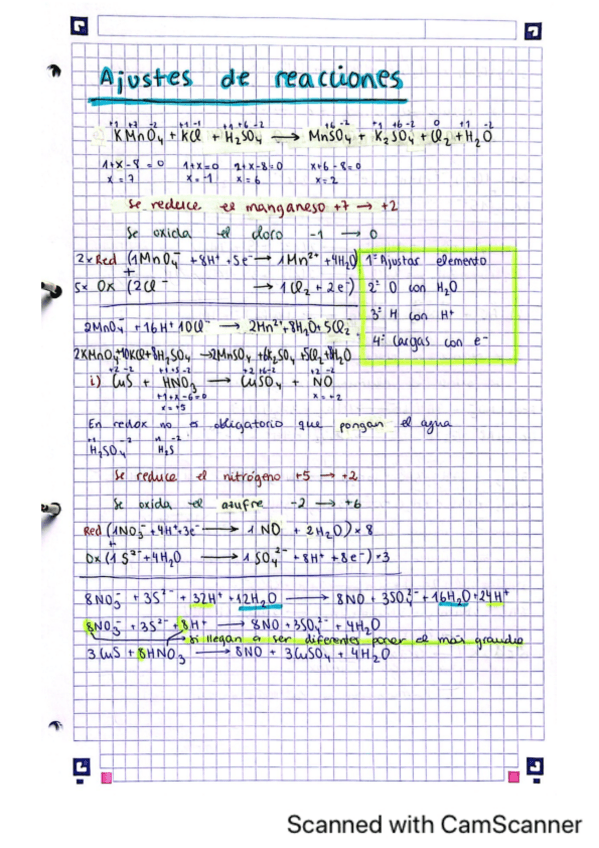 Ajustes de reacciones
+1 +7 -2 +1 -1 +1 +6 -2 +6 -2 +1 +6 -2 0 +1 -2
KMnO₄ + KCl + H₂SO₄ → MnSO₄ + K₂SO₄ + Cl₂ + H₂O
1+x-8=0 1+x=0 2+x-8=0 x+6-8=0
x=7 x=-1 x=6 x=2
Se reduce el manganeso +7 → +2
Se oxida el cloro -1 → 0
2x Red (1MnO₄⁻ + 8H⁺ + 5e⁻ → 1Mn²⁺ + 4H₂O)
+
5x Ox (2Cl⁻ → 1Cl₂ + 2e⁻)
1º Ajustar elemento
2º O con H₂O
3º H con H⁺
4º Cargas con e⁻
2MnO₄⁻ + 16H⁺ 10Cl⁻ → 2Mn²⁺ + 8H₂O + 5Cl₂
2KMnO₄ + 10KCl + 8H₂SO₄ → 2MnSO₄ + 6K₂SO₄ + 5Cl₂ + 8H₂O
+2 -2 +1 +5 -2 +2 +6 -2 +2 -2
i) CuS + HNO₃ → CuSO₄ + NO
+1+x-6=0 x=+2
x=+5
En redox no es obligatorio que pongan el agua
+1 -2 +1 -2
H₂SO₄ H₂S
Se reduce el nitrógeno +5 → +2
Se oxida el azufre -2 → +6
Red (1NO₃⁻ + 4H⁺ + 3e⁻ → 1 NO + 2H₂O) × 8
+
Ox (1 S²⁻ + 4H₂O → 1 SO₄²⁻ + 8H⁺ + 8e⁻) · 3
8NO₃⁻ + 3S²⁻ + 32H⁺ + 12H₂O → 8NO + 3SO₄²⁻ + 16H₂O + 24H⁺
8NO₃⁻ + 3S²⁻ + 8H⁺ → 8NO + 3SO₄²⁻ + 4H₂O
→ si llegan a ser diferentes poner el más grande
3CuS + 8HNO₃ → 8NO + 3CuSO₄ + 4H₂O
Scanned with CamScanner